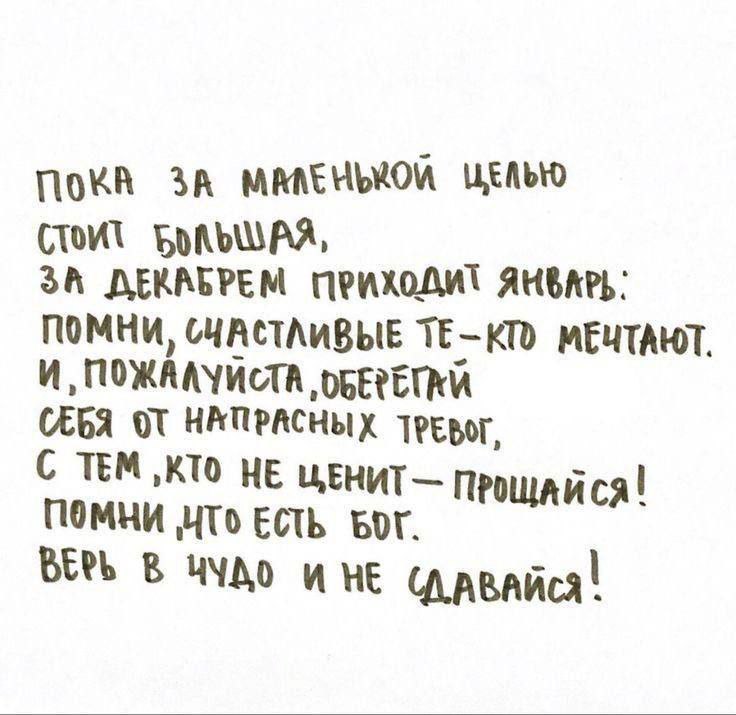 ПОКА ЗА МАЛЕНЬКОЙ ЦЕЛЬЮ
СТОИТ БОЛЬШАЯ,
ЗА ДЕКАБРЕМ ПРИХОДИТ ЯНВАРЬ:
ПОМНИ, СЧАСТЛИВЫЕ ТЕ – КТО МЕЧТАЮТ.
И, ПОЖАЛУЙСТА, ОБЕРЕГАЙ
СЕБЯ ОТ НАПРАСНЫХ ТРЕВОГ,
С ТЕМ, КТО НЕ ЦЕНИТ – ПРОЩАЙСЯ!
ПОМНИ, ЧТО ЕСТЬ БОГ.
ВЕРЬ В ЧУДО И НЕ СДАВАЙСЯ!